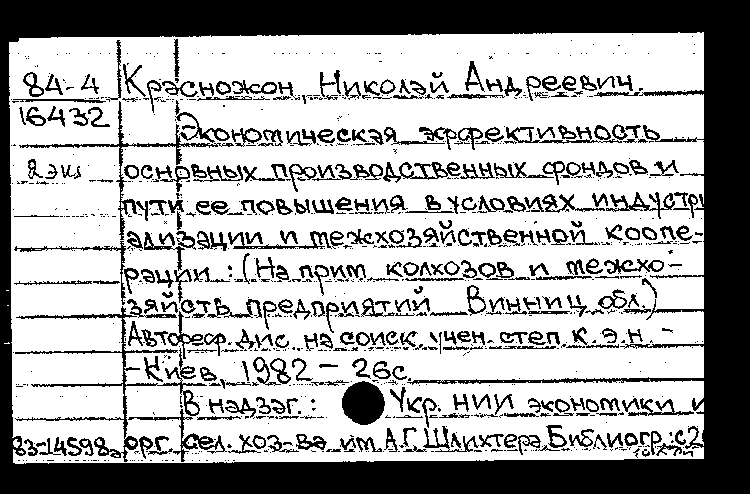 84-4 Красножон, Николай Андреевич.
16432 Экономическая эффективность
2 экз основных производственных фондов и
пути ее повышения в условиях индустри
ализации и межхозяйственной коопе-
рации : (На прим. колхозов и межхо-
зяйств. предприятий Винниц. обл.)
Автореф. дис. на соиск. учен. степ. к. э. н. -
-Киев, 1982 - 26с.
В надзаг.: Укр. НИИ экономики и
83-14598а орг. сел. хоз-ва им. А.Г. Шлихтера. Библиогр.: с.2